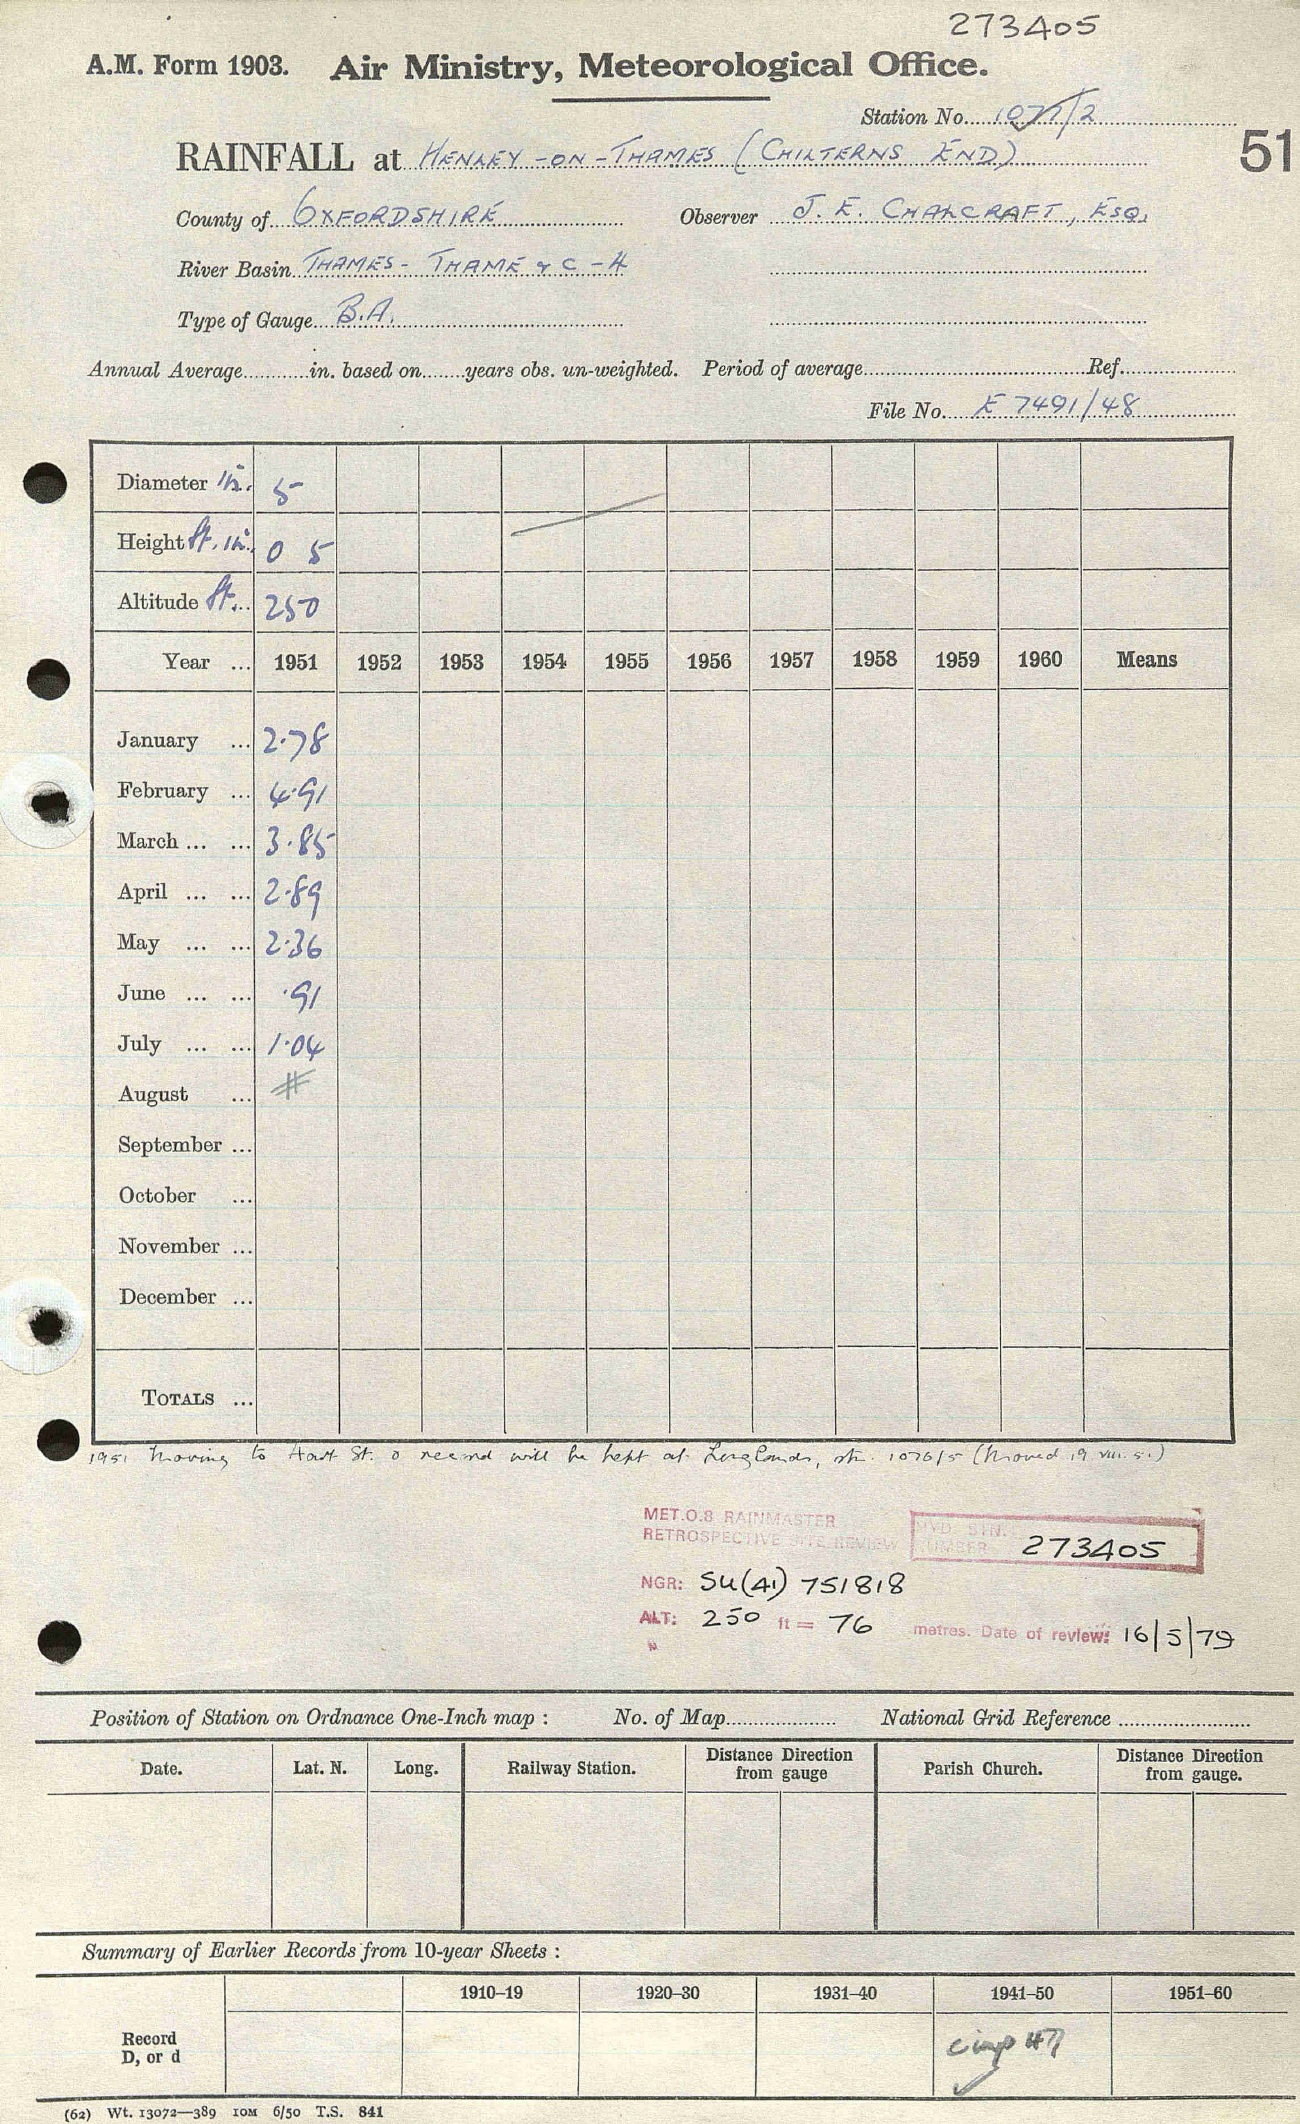 273405
A.M. Form 1903. Air Ministry, Meteorological Office.
Station No. 1077/2
51
RAINFALL at HENLEY-ON-THAMES (CHILTERNS END)
County of OXFORDSHIRE Observer J. E. CHALCRAFT, ESQ.
River Basin THAMES - THAME & C - 4
Type of Gauge B.A.
Annual Average in. based on years obs. un-weighted. Period of average Ref.
File No. E 7491/48
Diameter in. 5
Height ft. in. 0 5
Altitude ft. 250
Year ... 1951 1952 1953 1954 1955 1956 1957 1958 1959 1960 Means
January ... 2.78
February ... 4.91
March ... ... 3.85
April ... ... 2.89
May ... ... 2.36
June ... ... .91
July ... ... 1.04
August ... #
September ...
October ...
November ...
December ...
TOTALS ...
1951 Moving to Hart St. & record will be kept at Longlands, stn. 1076/5 (Moved 19 viii. 51)
MET.O.8 RAINMASTER
RETROSPECTIVE SITE REVIEW
STN. NUMBER 273405
NGR: SU(41) 751818
ALT: 250 ft = 76 metres. Date of review: 16/5/79
Position of Station on Ordnance One-Inch map : No. of Map National Grid Reference
Date. Lat. N. Long. Railway Station. Distance Direction from gauge Parish Church. Distance Direction from gauge.
Summary of Earlier Records from 10-year Sheets :
1910–19 1920–30 1931–40 1941–50 1951–60
Record
D, or d
47
(62) Wt. 13072—389 10M 6/50 T.S. 841